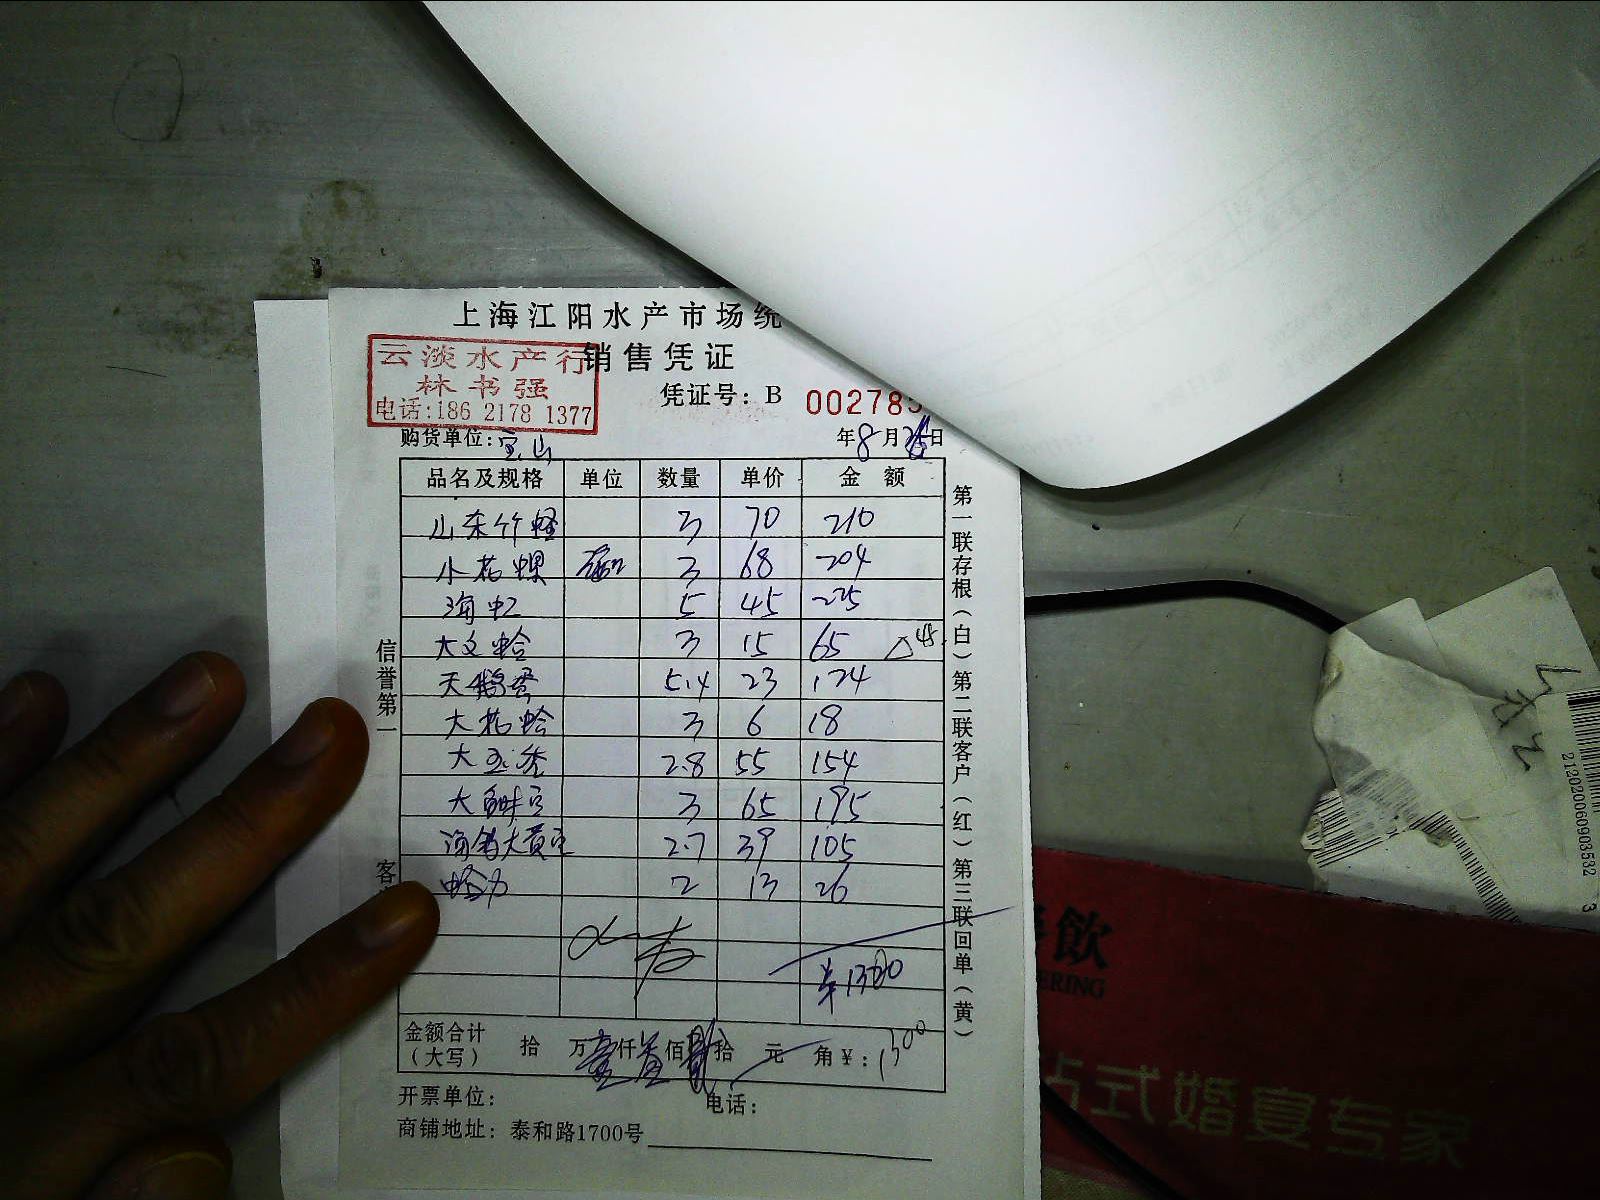 上海江阳水产市场统
云淡水产行
林书强
电话:186 2178 1377
销售凭证
凭证号: B 002785
购货单位: 宝山 年8月 日
品名及规格 单位 数量 单价 金额
山东竹蛏 3 70 210
小花螺 3 68 204
海虹 5 45 225
大文蛤 3 15 65 △45
天鹅蛋 5.4 23 124
大花蛤 3 6 18
大玉秃 2.8 55 154
大鲜贝 3 65 195
海捕大黄 2.7 39 105
蛤 2 13 26
¥1300
金额合计
(大写) 拾 万壹仟叁佰 拾 元 角¥: 1300
开票单位: 电话:
商铺地址: 泰和路1700号
信誉第一
客
第一联存根(白) 第二联客户(红) 第三联回单(黄)
2120200609903532 3
餐飲
ERING
站式婚宴专家